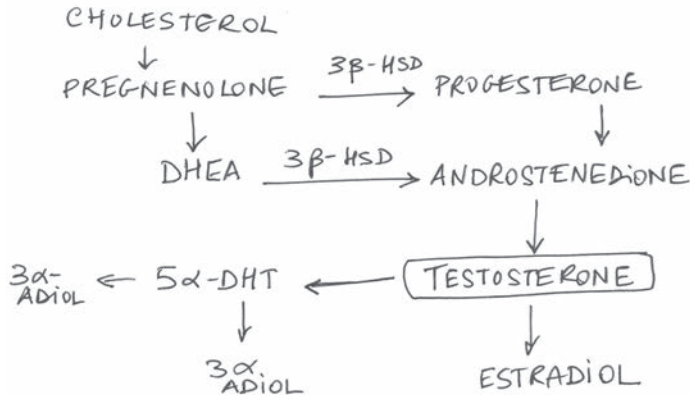 CHOLESTEROL
3β-HSD
PREGNENOLONE PROGESTERONE
3β-HSD
DHEA ANDROSTENEDiONE
3α- ADiOL 5α-DHT TESTOSTERONE
3α ADiOL ESTRADiOL